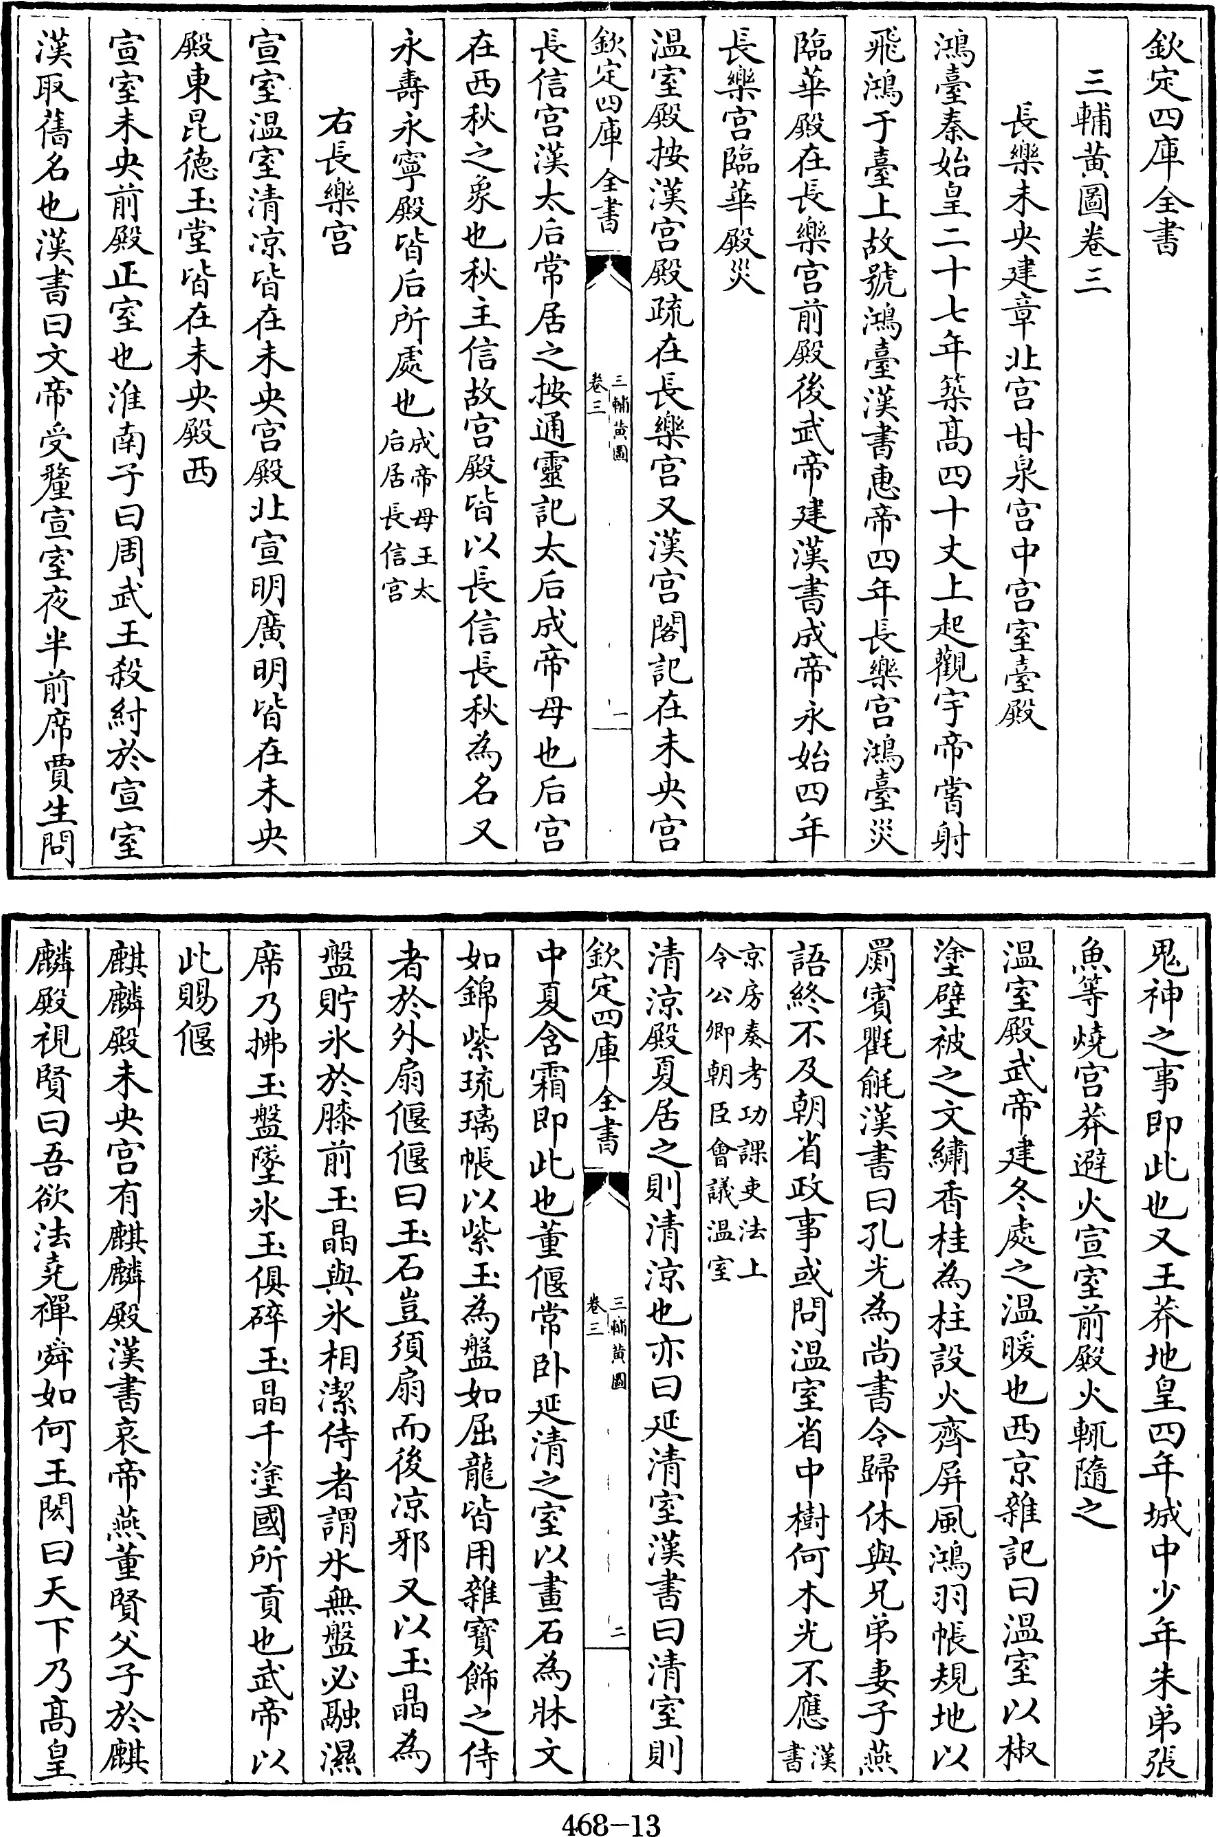 欽定四庫全書
三輔黃圖卷三
長樂未央建章北宮甘泉宮中宮室臺殿
鴻臺秦始皇二十七年築髙四十丈上起觀宇帝嘗射
飛鴻于臺上故號鴻臺漢書惠帝四年長樂宮鴻臺災
臨華殿在長樂宮前殿後武帝建漢書成帝永始四年
長樂宮臨華殿災
溫室殿按漢宮殿疏在長樂宮又漢宮閣記在未央宮
欽定四庫全書
三輔黃圖
卷三
一
長信宮漢太后常居之按通靈記太后成帝母也后宮
在西秋之象也秋主信故宮殿皆以長信長秋為名又
永壽永寧殿皆后所處也成帝母王太
后居長信宮
右長樂宮
宣室溫室清凉皆在未央宮殿北宣明廣明皆在未央
殿東昆德玉堂皆在未央殿西
宣室未央前殿正室也淮南子曰周武王殺紂於宣室
漢取舊名也漢書曰文帝受釐宣室夜半前席賈生問
鬼神之事即此也又王莽地皇四年城中少年朱弟張
魚等燒宮莽避火宣室前殿火輒隨之
溫室殿武帝建冬處之溫暖也西京雜記曰溫室以椒
塗壁被之文繡香桂為柱設火齊屏風鴻羽帳規地以
罽賓氍毹漢書曰孔光為尚書令歸休與兄弟妻子燕
語終不及朝省政事或問溫室省中樹何木光不應漢
書
京房奏考功課吏法上
令公卿朝臣會議溫室
清凉殿夏居之則清凉也亦曰延清室漢書曰清室則
欽定四庫全書
三輔黃圖
卷三
二
中夏含霜即此也董偃常卧延清之室以畫石為牀文
如錦紫琉璃帳以紫玉為盤如屈龍皆用雜寶飾之侍
者於外扇偃偃曰玉石豈須扇而後凉邪又以玉晶為
盤貯氷於膝前玉晶與氷相潔侍者謂氷無盤必融濕
席乃拂玉盤墜氷玉俱碎玉晶千塗國所貢也武帝以
此賜偃
麒麟殿未央宮有麒麟殿漢書哀帝燕董賢父子於麒
麟殿視賢曰吾欲法堯禪舜如何王閎曰天下乃髙皇
468-13